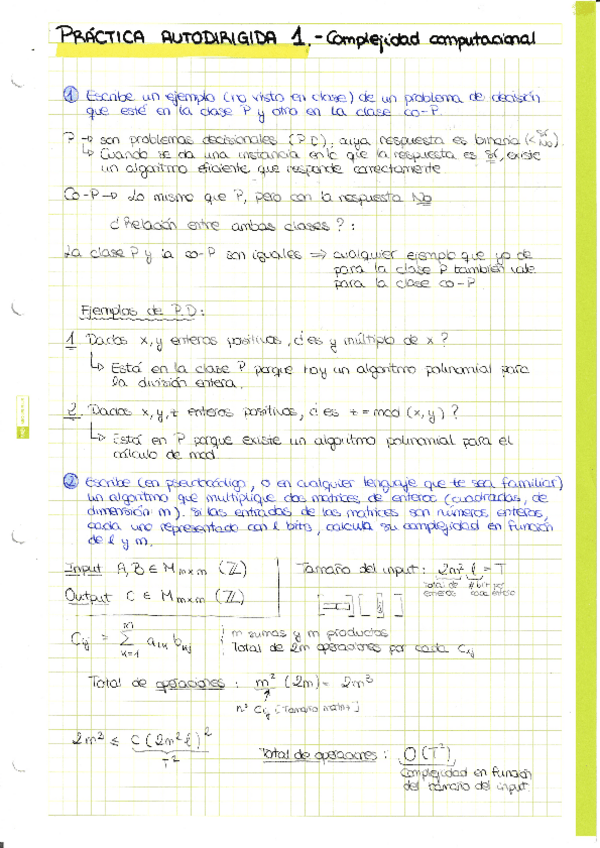 PRÁCTICA AUTODIRIGIDA 1.- Complejidad computacional
① Escribe un ejemplo (no visto en clase) de un problema de decisión
que esté en la clase P y otro en la clase co-P.
P → son problemas decisionales (P.D), cuya respuesta es binaria (< Sí No).
↳ Cuando se da una instancia en la que la respuesta es Sí, existe
un algoritmo eficiente que responde correctamente.
Co-P → Lo mismo que P, pero con la respuesta No
¿Relación entre ambas clases?:
La clase P y la co-P son iguales ⇒ cualquier ejemplo que yo de
para la clase P también vale
para la clase co-P.
Ejemplos de P.D:
1 Dados x, y enteros positivos, ¿es y múltiplo de x?
↳ Está en la clase P porque hay un algoritmo polinomial para
la división entera.
2. Dados x, y, t enteros positivos, ¿es t = mod (x, y)?
↳ Está en P porque existe un algoritmo polinomial para el
cálculo de mod.
② Escribe (en pseudocódigo, o en cualquier lenguaje que te sea familiar)
un algoritmo que multiplique dos matrices de enteros (cuadradas, de
dimensión m). Si las entradas de las matrices son números enteros,
cada uno representado con l bits, calcula su complejidad en función
de l y m.
Input A, B ∈ M m×m (ℤ)
Output C ∈ M m×m (ℤ)
Tamaño del input: 2m² l = T
total de enteros # bit por cada entero
Cij = m Σ k=1 aik bkj
m sumas y m productos
Total de 2m operaciones por cada Cij
Total de operaciones: m² (2m) = 2m³
nº Cij [Tamaño matriz]
2m³ ≤ C (2m² l)²
T²
Total de operaciones: O(T²)
Complejidad en función
del tamaño del input.